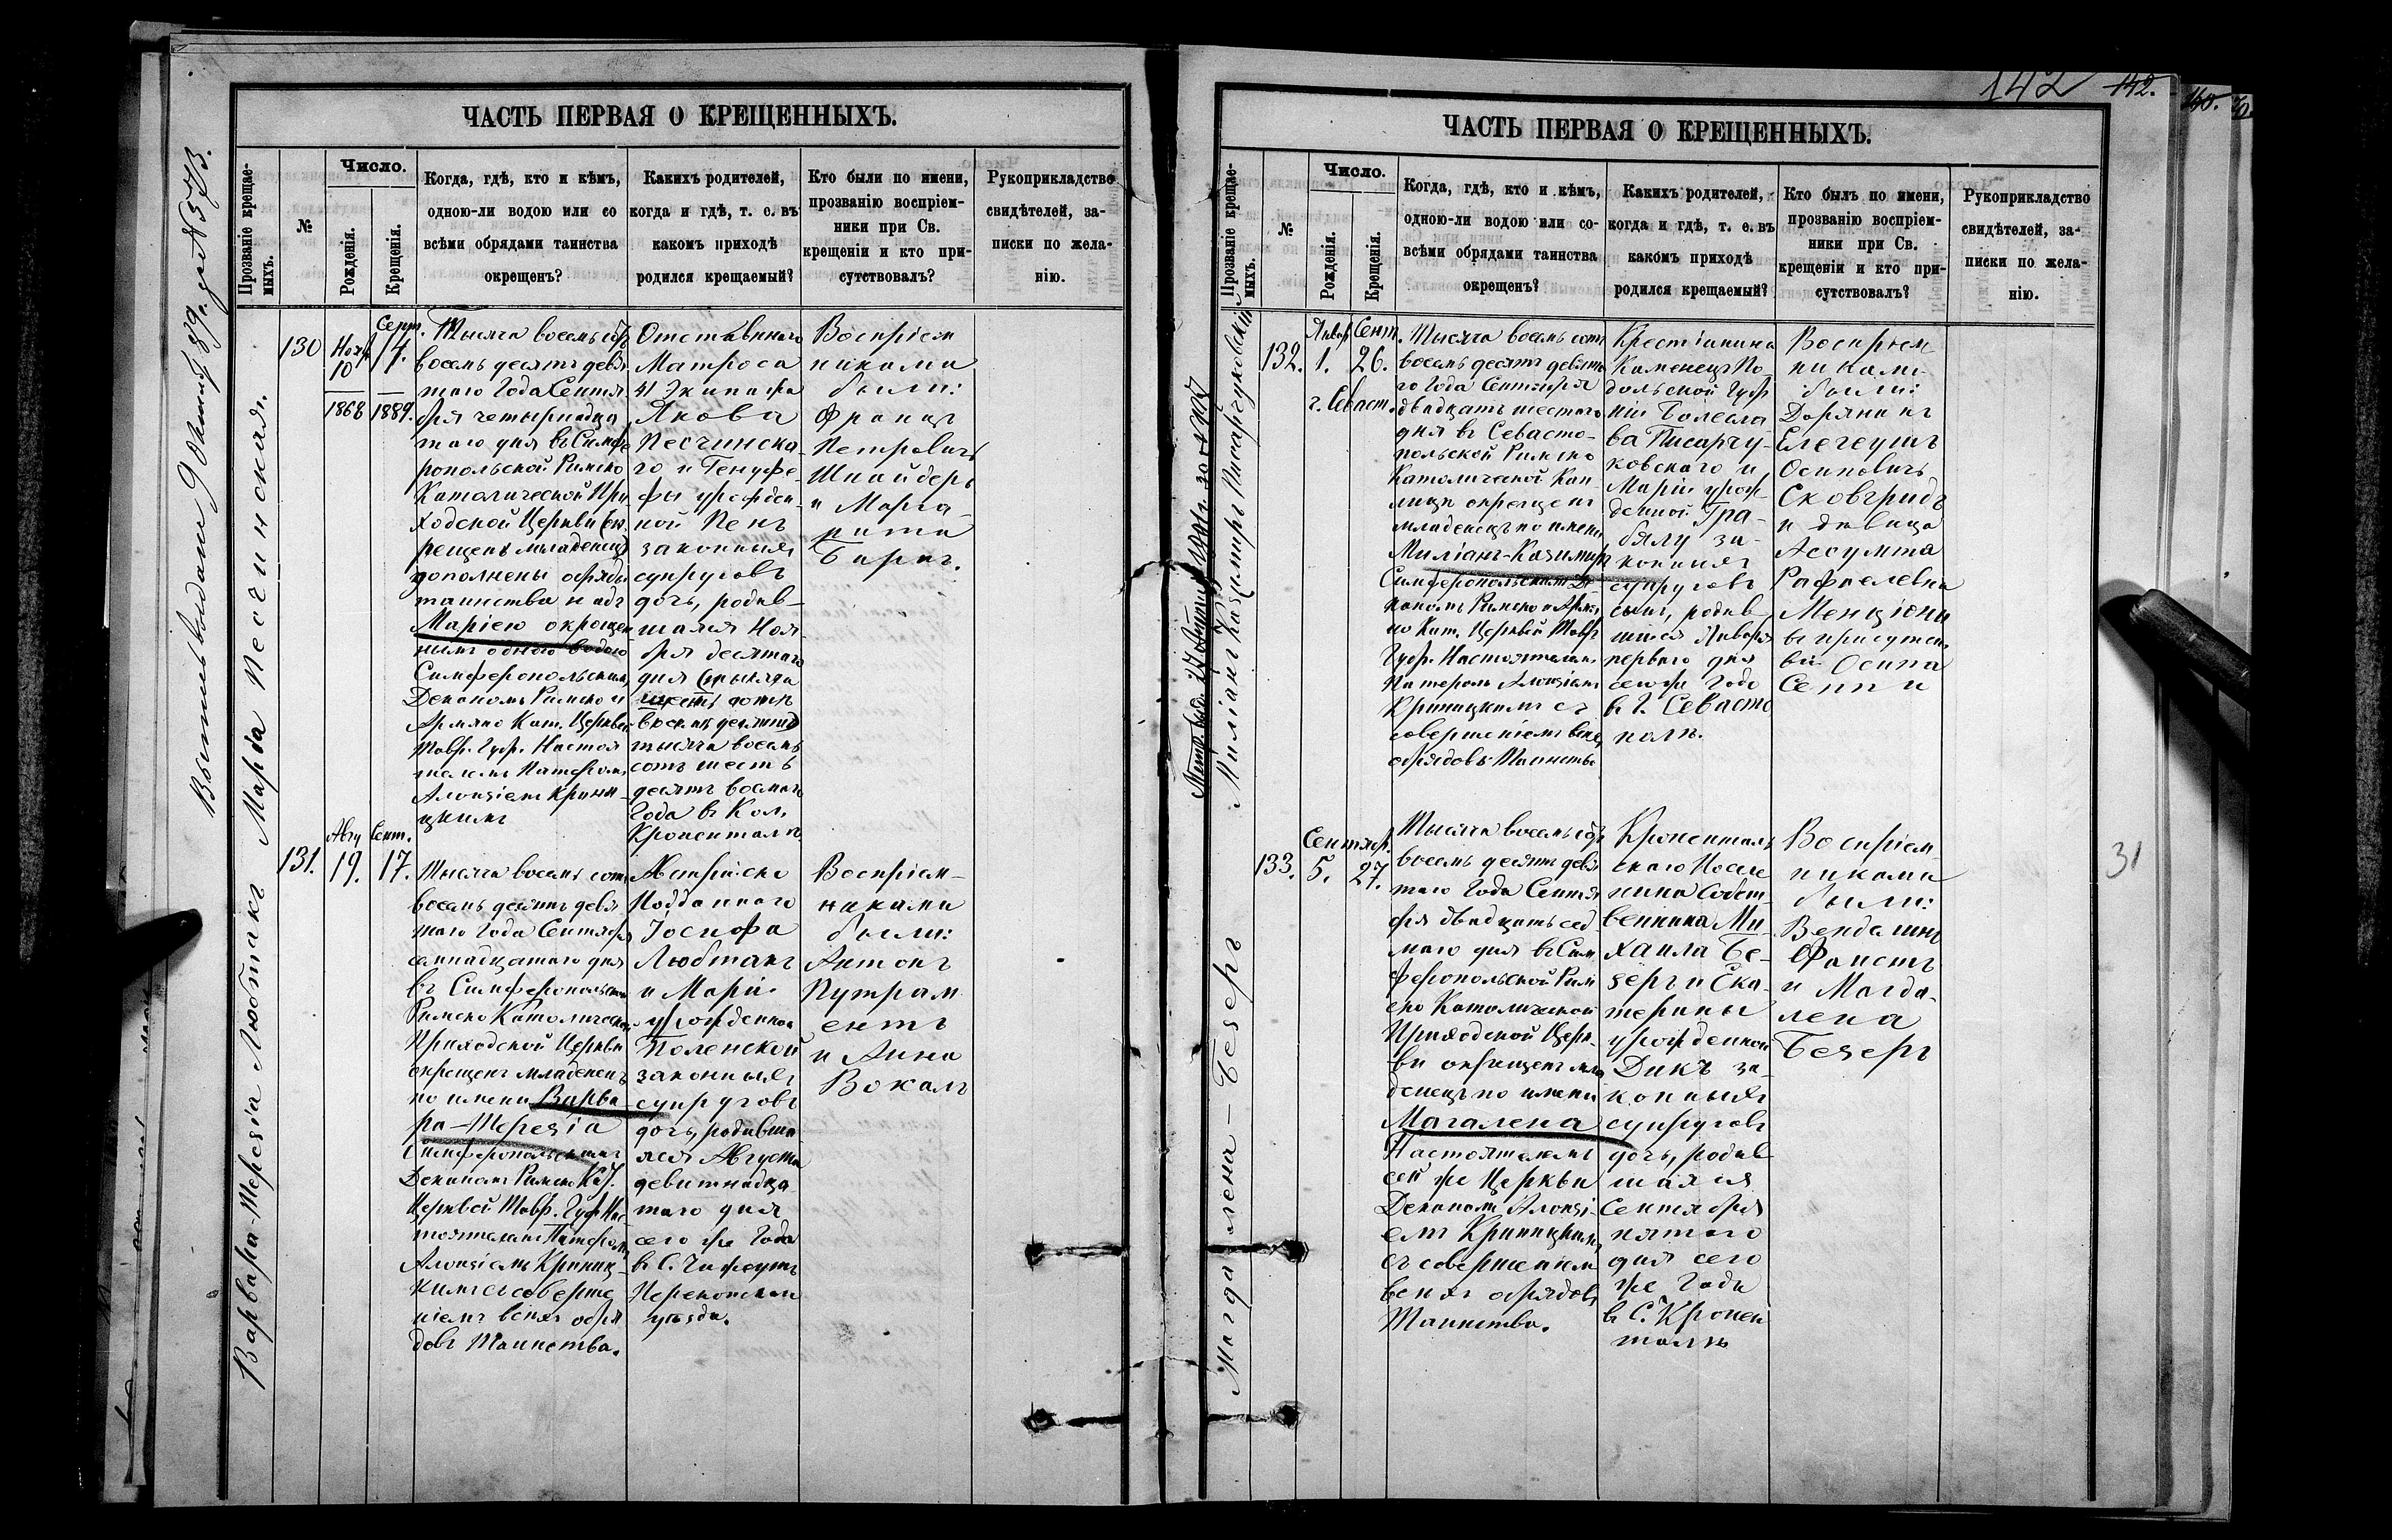 ЧАСТЬ ПЕРВАЯ О КРЕЩЕННЫХЪ.
Прозваніе крещае-
мыхъ.
№
Число.
Рожденія.
Крещенія.
Когда, гдѣ, кто и кѣмъ,
одною-ли водою или со
всѣми обрядами таинства
окрещенъ?
Какихъ родителей,
когда и гдѣ, т. е. въ
какомъ приходѣ
родился крещаемый?
Кто были по имени,
прозванію воспріем-
ники при Св.
крещеніи и кто при-
сутствовалъ?
Рукоприкладство
свидѣтелей, за-
писки по жела-
нію.
Марія Песчинская.
130
Нояб
10
1868
Сент.
14.
1889.
Тысяча восемьсотъ
восемь десятъ девя
таго Года Сентя
бря четырнадца
таго дня въ Симфе
ропольской Римско
Католической При
ходской Церкви
младенецъ
дополнены обряды
таинства надъ
Маріею окрещен
нымъ одною водою
Симферопольскимъ
Деканомъ Римско и
Армяно Кат. Церквей
Тавр. Губ. Настоя
телемъ Патеромъ
Алоизіемъ Крини
цкимъ
Отставнаго
Матроса
41 Экипажа
Якова
Песчинска
го и Генуфе
фы урожден
ной Пенъ
законныхъ
супруговъ
дочь, родив-
шаяся Ноя
бря десятаго
дня
шесть сотъ
восемь десятъ
тысяча восемь
сотъ шесть
десятъ восмаго
Года въ Кол.
Кроненталь.
Воспріем
никами
были:
Францъ
Петровичъ
Шнайдеръ
и Марга-
рита
131.
Авгу
19.
Сент.
17.
Варвара-Терезія Любтакъ
Тысяча восемь сотъ
восемь десятъ девя
таго Года Сентября
семнадцатаго дня
въ Симферопольской
Римско Католической
Приходской Церкви
окрещенъ младенецъ
по имени Варва
ра-Терезія
Симферопольскимъ
Деканомъ Римско Кат.
Церквей Тавр. Губ. Нас
тоятелемъ Патеромъ
Алоизіемъ Криниц
кимъ съ соверше
ніемъ всѣхъ обря
довъ Таинства.
Австрійско
Подданнаго
Іосифа
Любтакъ
и Маріи
урожденной
Поленской
законныхъ
супруговъ
дочь, родивша
яся Августа
девятнадца
таго дня
сего же Года
въ С.
Перекопскаго
уѣзда.
Воспріем-
никами
были:
Антонъ
и Анна
Вокалъ
142
142.
ЧАСТЬ ПЕРВАЯ О КРЕЩЕННЫХЪ.
Прозваніе крещае-
мыхъ.
№
Число.
Рожденія.
Крещенія.
Когда, гдѣ, кто и кѣмъ,
одною-ли водою или со-
всѣми обрядами таинства
окрещенъ?
Какихъ родителей,
когда и гдѣ, т. е. въ
какомъ приходѣ
родился крещаемый?
Кто былъ по имени,
прозванію воспріем-
ники при Св.
крещеніи и кто при-
сутствовалъ?
Рукоприкладство
свидѣтелей, за-
писки по жела-
нію.
Миліанъ-Казимиръ Писарчуковскій
132.
Январ
1.
Сент.
26.
г. Севаст.
Тысяча восемь сотъ
восемь десятъ девята
го Года Сентября
двадцать шестаго
дня въ Севасто-
польской Римско
Католической Кап
лицѣ окрещенъ
младенецъ по имени
Миліанъ-Казимиръ
Симферопольскимъ Де
каномъ Римско и Армя
но Кат. Церквей Тавр
Губ. Настоятелемъ
Патеромъ Алоизіемъ
Криницкимъ съ
совершеніемъ всѣхъ
обрядовъ Таинства
Крестьянина
Каменецъ По-
дольской Губ
ніи Болесла
ва Писарчу-
ковскаго и
Маріи урож-
денной Гра-
бялу за-
конныхъ
супруговъ
сынъ, родив
шійся Января
перваго дня
сего же Года
въ Г. Севасто
полѣ.
Воспріем
никами
были:
Осиповичъ
и дѣвица
Ассумта
Рафаелевна
въ присутст
віи Осипа
133.
Сентябр.
5.
27.
Магдалена - Безеръ
Тысяча восемь сотъ
восемь десятъ девя
таго Года Сентя
бря двадцать сед
маго дня въ Сим
феропольской Рим
ско Католической
Приходской Церк-
ви окрещенъ мла
денецъ по имени
Магалена
Настоятелемъ
сей же Церкви
Деканомъ Алоизі-
емъ Криницкимъ,
съ совершеніемъ
всѣхъ обрядовъ
Таинства.
Кроненталь
скаго Поселе
нина Собст-
венника Ми-
хаила Бе-
зеръ и Ека-
терины
урожденной
Дикъ за-
конныхъ
супруговъ
дочь, родив
шаяся
Сентября
пятаго
дня сего
же Года
въ С. Кронен
талѣ
Воспріем
никами
были:
Венделинъ
Фаистъ
и Магда-
лена
Безеръ
31